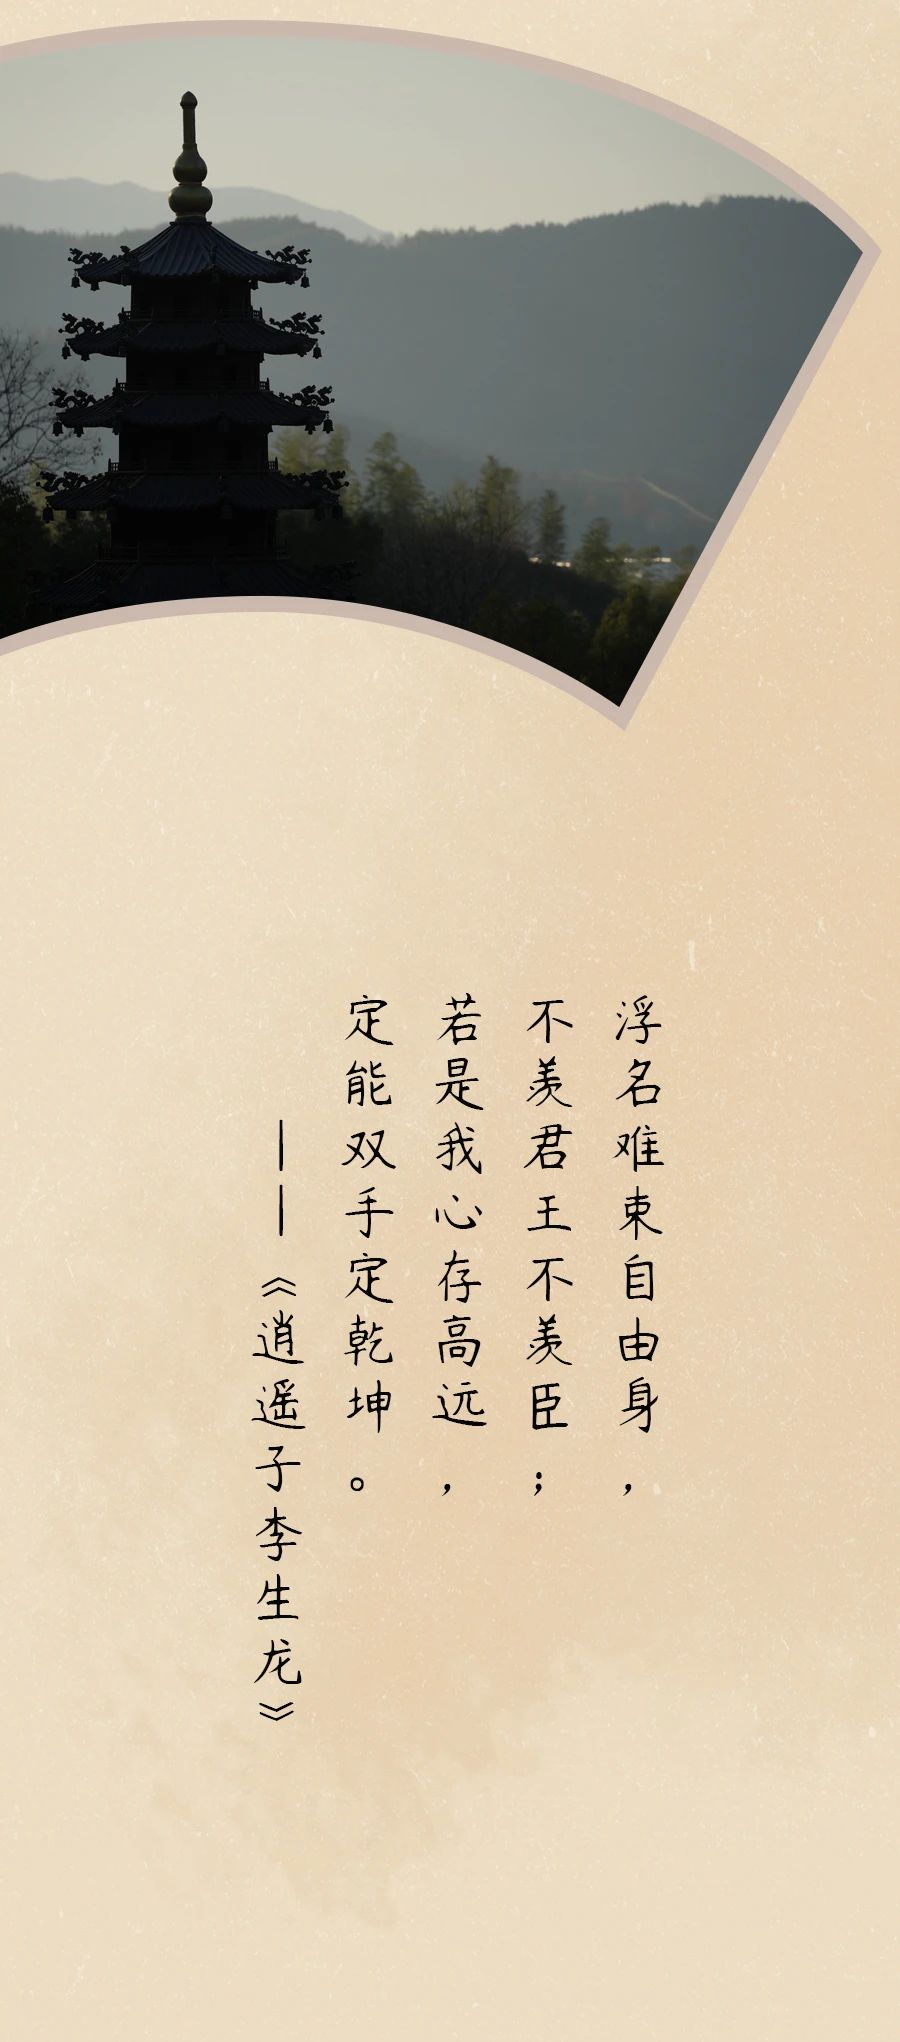 浮名难束自由身，
不羡君王不羡臣；
若是我心存高远，
定能双手定乾坤。
——《逍遥子李生龙》